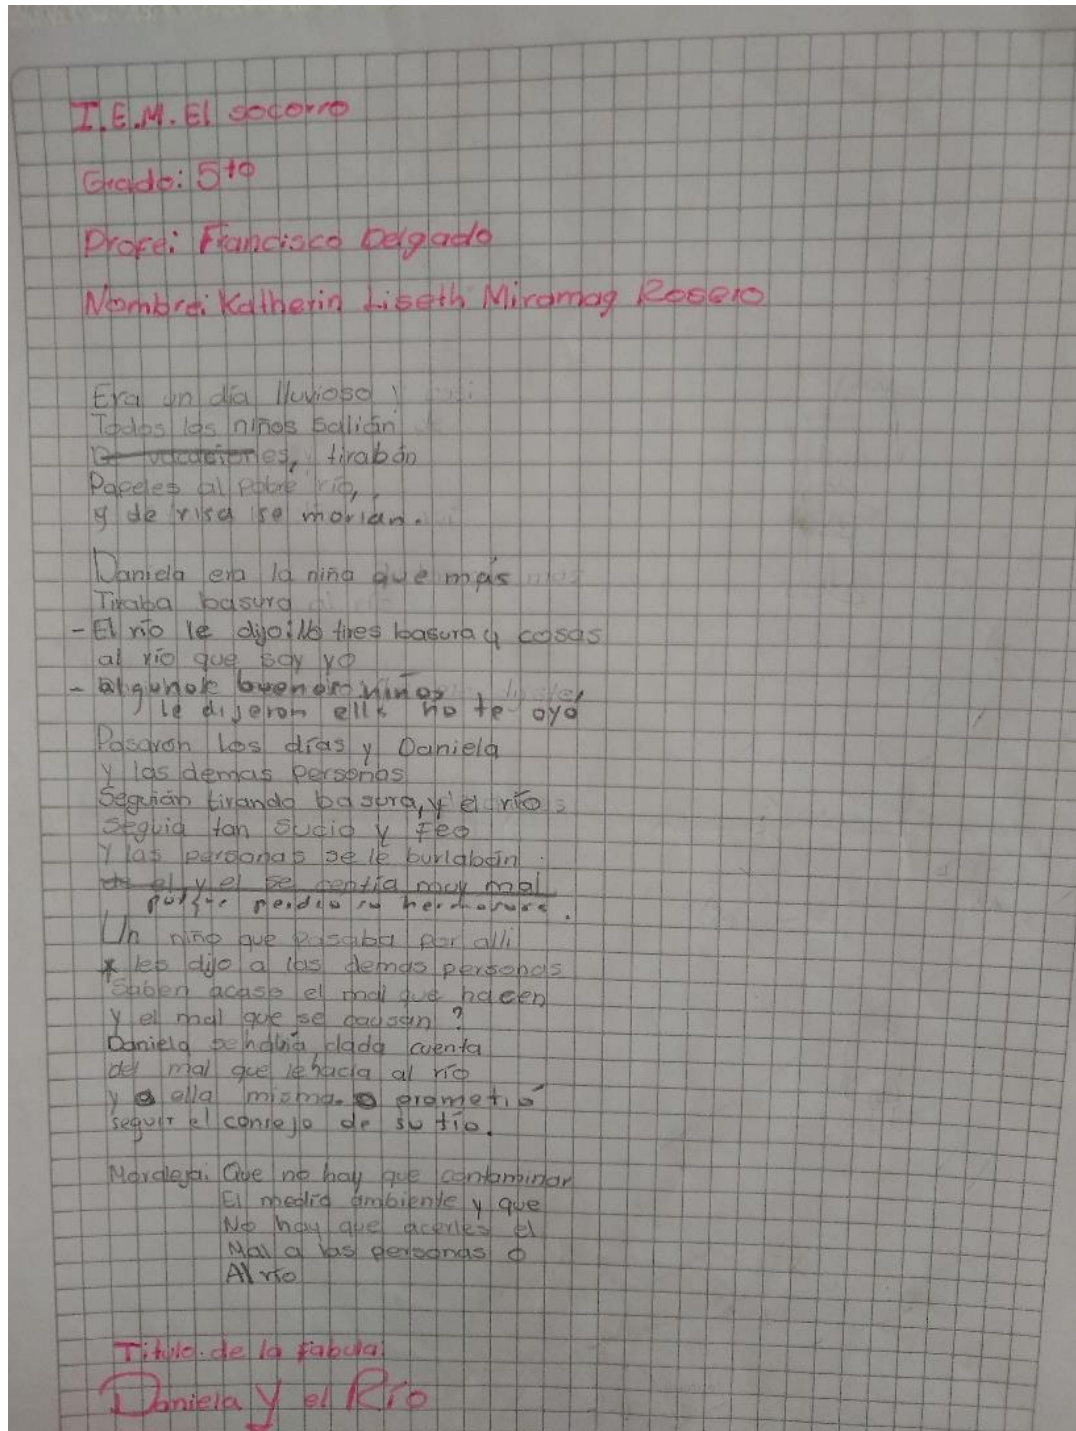 I.E.M. El socorro
Grado: 5to
Profe: Francisco Delgado
Nombre: Katherin Liseth Miramag Rosero
Era un día lluvioso y
Todos los niños Salián
De vacaciones, tirabán
Papeles al pobre río,
y de risa se morian.
Daniela era la niña que más
Tiraba basura
- El río le dijo: No tires basura y cosas
al río que soy yo
- algunos buenos niños
le dijeron ella no te oyó
Pasarón los días y Daniela
y las demas personas
Seguián tirando basura, y el río
seguia tan sucio y Feo
Y las personas se le burlabán
de el y el se sentía muy mal
porque perdio su hermosura.
Un niño que pasaba por alli
* les dijo a las demas personas
Saben acaso el mal que hacen
y el mal que se causan?
Daniela se había dada cuenta
del mal que le hacia al río
y a ella misma. prometió
seguir el consejo de su tío.
Moraleja: Que no hay que contaminar
El medio ambiente y que
No hay que acerles el
Mal a las personas o
Al río
Titulo de la fabula
Daniela y el Río